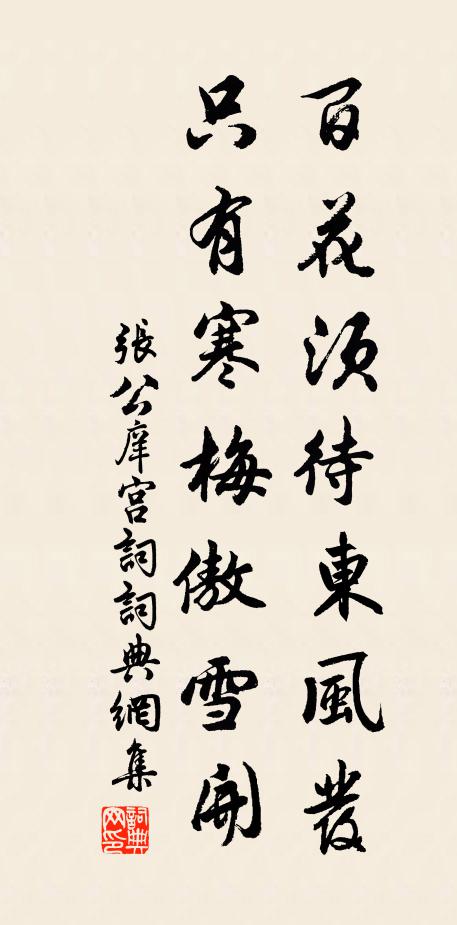 百花須待東風發
只有寒梅傲雪開
張公庠宮詞詞典網集
詞典网印